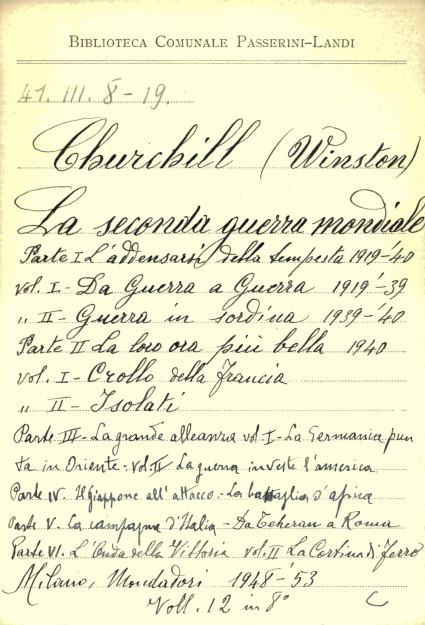 BIBLIOTECA COMUNALE PASSERINI-LANDI
41. III. 8-19.
Churchill (Winston)
La seconda guerra mondiale
Parte I L'addensarsi della tempesta 1919-'40
vol. I - Da Guerra a Guerra 1919-'39
,, II - Guerra in sordina 1939-'40
Parte II La loro ora più bella 1940
vol. I - Crollo della Francia
,, II - Isolati
Parte III - La grande alleanza vol. I - La Germania pun
ta in Oriente - vol. II La guerra investe l'america
Parte IV. Il giappone all'attacco - La battaglia d'africa
Parte V. La campagna d'Italia - Da Teheran a Roma
Parte VI. L'Onda della Vittoria vol. II La Cortina di Ferro
Milano, Mondadori 1948-'53
Voll. 12 in 8°
C